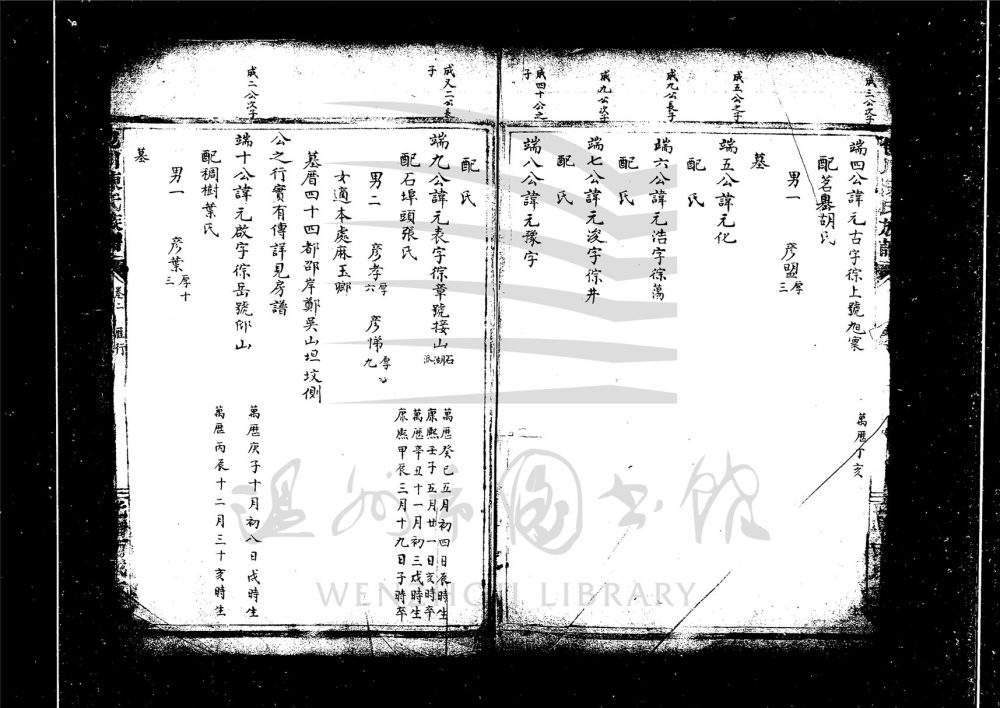 成三公次子
端四公諱元古字徖上號旭寰
萬曆丁亥
配茗嶴胡氏
男一 彦盟厚三
墓
成五公之子
端五公諱元化
配 氏
成九公長子
端六公諱元浩字徖萬
配 氏
成九公次子
端七公諱元浚字徖井
配 氏
成四十公之子
端八公諱元豫字
配 氏
成又二公長子
端九公諱元表字徖章號接山石湖派
萬曆癸巳五月初四日辰時生
康熙壬子五月廿一日亥時卒
配石埠頭張氏
萬曆辛丑十一月初三戌時生
康熙甲辰三月十九日子時卒
男二 彦孝厚六 彦悌厚九
女適本處麻玉卿
墓厝四十四都邵岸鄭吳山坦坟側
公之行實有傳詳見房譜
成二公次子
端十公諱元啟字徖岳號仰山
萬曆庚子十月初八日戌時生
配稠樹葉氏
萬曆丙辰十二月三十亥時生
男一 彦葉厚十三
墓
卷二 雁行
溫州市圖書館
WENZHOU LIBRARY